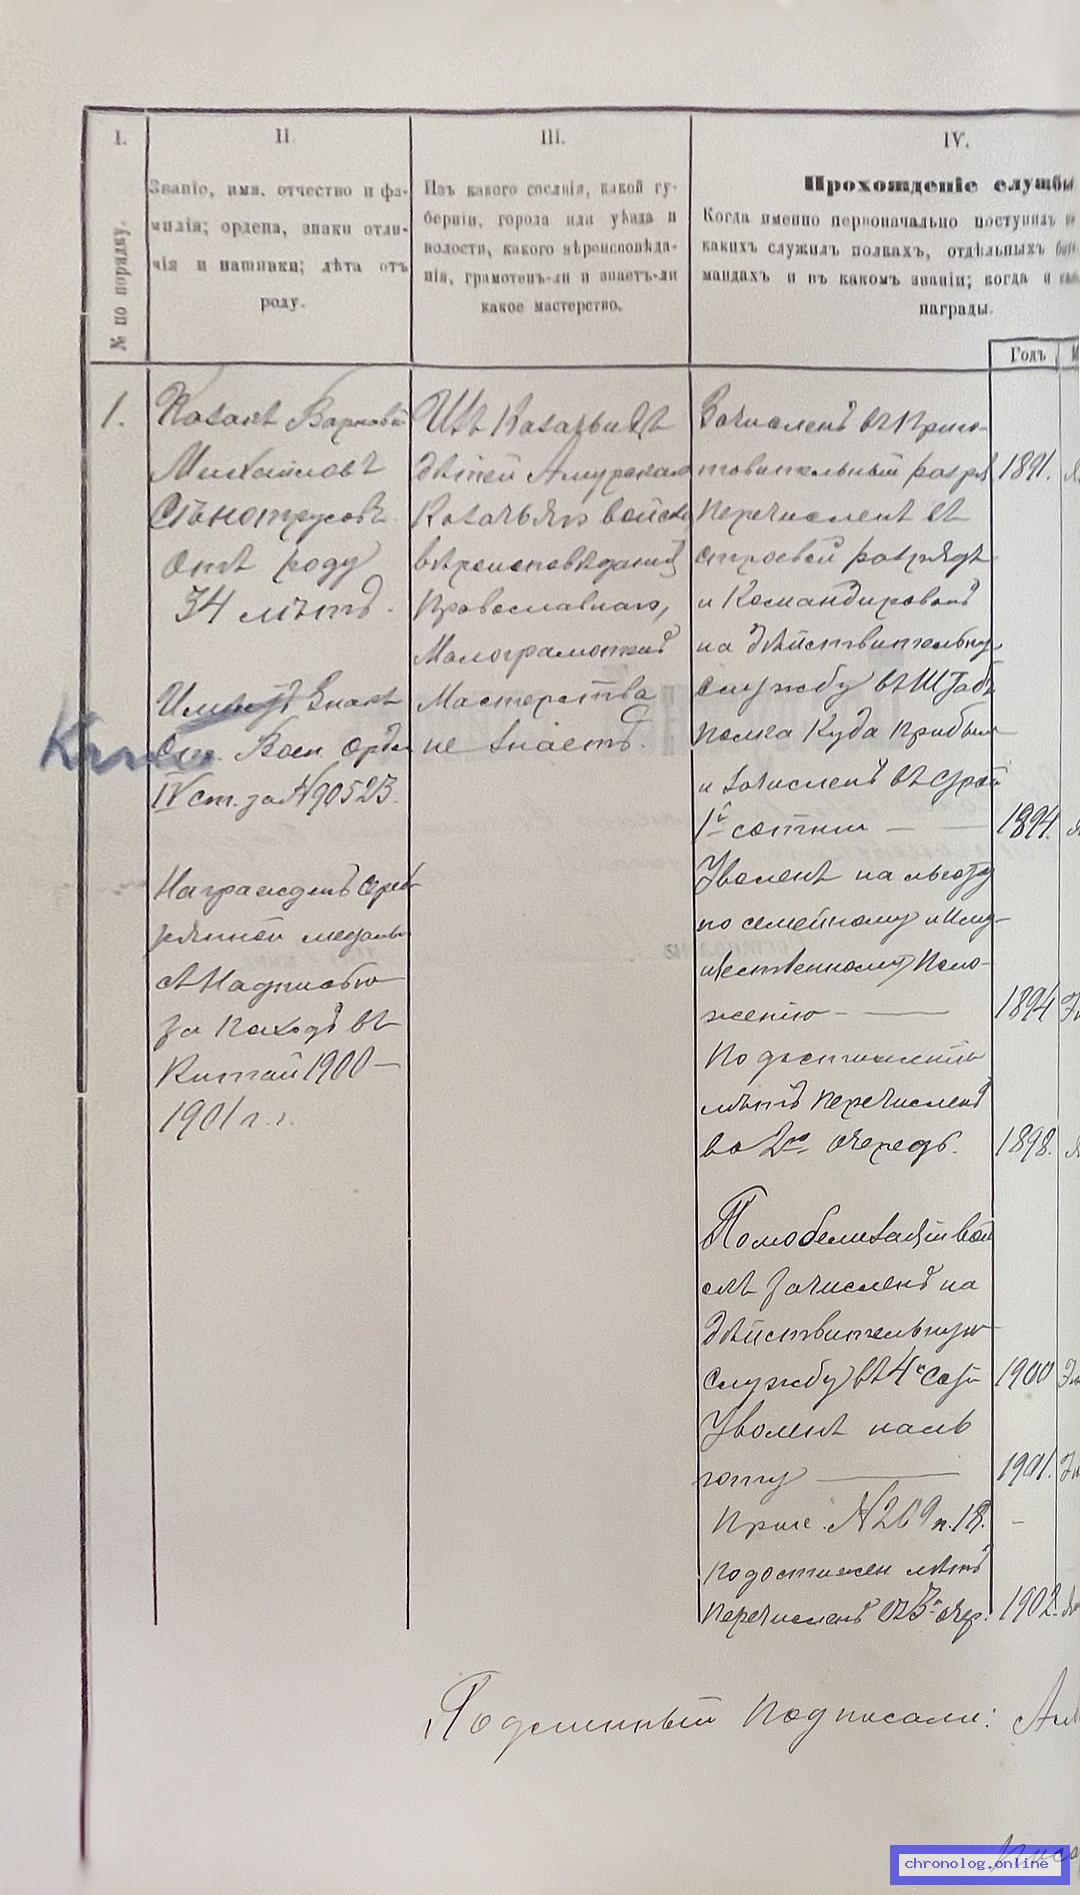 I.
II.
III.
IV.
№ по порядку.
Званіе, имя, отчество и фа-
милія; ордена, знаки отли-
чія и нашивки; лѣта отъ
роду.
Изъ какого сословія, какой гу-
берніи, города или уѣзда и
волости, какого вѣроисповѣда-
нія, грамотенъ-ли и знаетъ-ли
какое мастерство.
Прохожденіе службы
Когда именно первоначально поступилъ
какихъ служилъ полкахъ, отдѣльныхъ
мандахъ и въ какомъ званіи; когда и
награды.
Годъ
1.
Казакъ
Михайловъ
Отъ роду
34 лѣтъ.
Имѣетъ Знакъ
Отл. Воен. Орден
IV ст. за № 90523.
Награжденъ сереб
рянной медалью
съ Надписью
за Походъ въ
Китай 1900—
1901 г.г.
Изъ Казачьихъ
дѣтей Амурскаго
Казачьяго войска
вѣроисповѣданія
Православнаго,
Малограмотный
Мастерства
не знаетъ.
Зачисленъ въ Приго-
товительный разря 1891.
Перечисленъ въ
строевой разрядъ
и Командированъ
на дѣйствительну
службу въ Штабъ
полка куда прибылъ
и зачисленъ въ строй
1й сотни — 1894.
Уволенъ на льготу
по семейному и Иму-
щественному Поло-
женію — 1894
По достиженіи
лѣтъ перечисленъ
во 2ю очередь. 1898.
По мобелизаціи вой
скъ зачисленъ на
дѣйствительную
службу въ 4ю сот 1900
Уволенъ на ль
готу — 1901.
Прик. № 209 п. 18. -
по достижен лѣтъ
перечисленъ въ 3ю очер. 1902.
Подлинный подписали:
chronolog.online